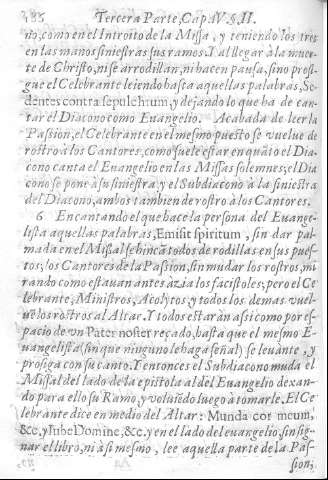 485 Tercera Parte, Cap. IV. §. II.
no, como en el Introito de la Missa, y teniendo los tres
en las manos siniestras sus ramos. Y al llegar à la muer-
te de Christo, ni se arrodillan, ni hacen pausa, sino prosi-
gue el Celebrante leiendo hasta aquellas palabras, Se-
dentes contra sepulchrum, y dejando lo que ha de can-
tar el Diacono como Euangelio. Acabada de leer la
Passion, el Celebrante en el mesmo puesto se vuelue de
rostro à los Cantores, como suele estar en quãto el Dia-
cono canta el Euangelio en las Missas solemnes; el Dia
cono se pone à su siniestra y el Subdiacono à la siniestra
del Diacono, ambos tambien de rostro à los Cantores.
6 En cantando el que hace la persona del Euange-
lista aquellas palabras, Emisit spiritum, sin dar pal-
mada en el Missal se hincã todos de rodillas en sus pues-
tos; los Cantores de la Passion, sin mudar los rostros, mi
rando como estauan antes àzia los facistoles; pero el Ce
lebrante, Ministros, Acolytos, y todos los demas vuel-
uẽ los rostros al Altar. Y todos estaràn assi como por es-
pacio de vn Pater noster reçado, hasta que el mesmo E-
uangelista (sin que ninguno le haga señal) se leuante, y
prosiga con su canto. Y entonces el Subdiacono muda el
Missal del lado de la epistola al del Euangelio dexan-
do para ello su Ramo, y voluiẽdo luego à tomarle. El Ce
lebrante dice en medio del Altar: Munda cor meum,
&c, y Iube Domine, &c. y en el lado del euangelio, sin sig-
nar el libro, ni à si mesmo, lee aquella parte de la Pas-
sion,